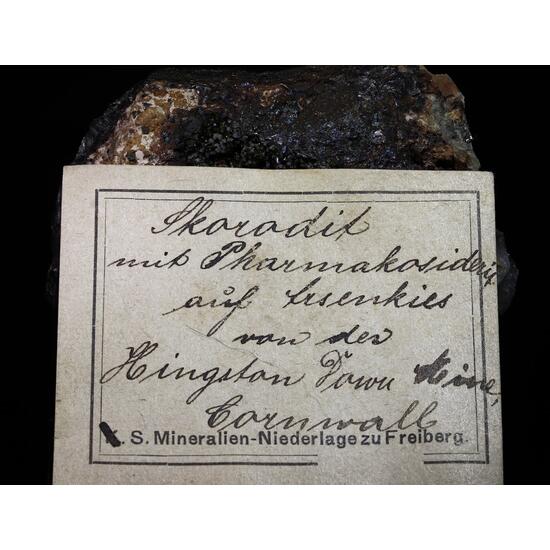 Skorodit
mit Pharmakosiderit
auf Arsenkies
von der
Hingston Down Mine,
Cornwall
K. S. Mineralien-Niederlage zu Freiberg.